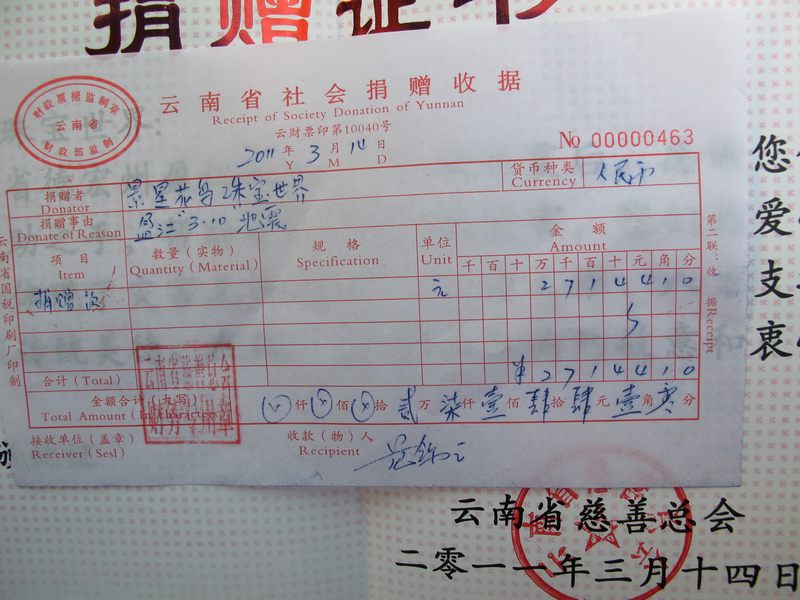 捐赠证书
财政票据监制章
云南省
财政部监制
云南省社会捐赠收据
Receipt of Society Donation of Yunnan
云财票印第10040号
No 00000463
2011 年 3 月 14 日
Y M D
捐赠者 景星花鸟珠宝世界 货币种类 人民币
Donator Currency
捐赠事由 盈江"3·10"地震
Donate of Reason
项目 数量（实物） 规格 单位 金额
Item Quantity (Material) Specification Unit Amount
千 百 十 万 千 百 十 元 角 分
捐赠款 元 2 7 1 4 4 1 0
合计 (Total) ¥ 2 7 1 4 4 1 0
金额合计（大写） 仟 佰 拾 贰 万 柒 仟 壹 佰 肆 拾 肆 元 壹 角 零 分
Total Amount (In Character)
接收单位（盖章） 收款（物）人
Receiver (Sesl) Recipient
云南省国税印刷厂印制
第二联：收据 Receipt
您
爱
支
衷
和
云南省慈善总会
二零一一年三月十四日